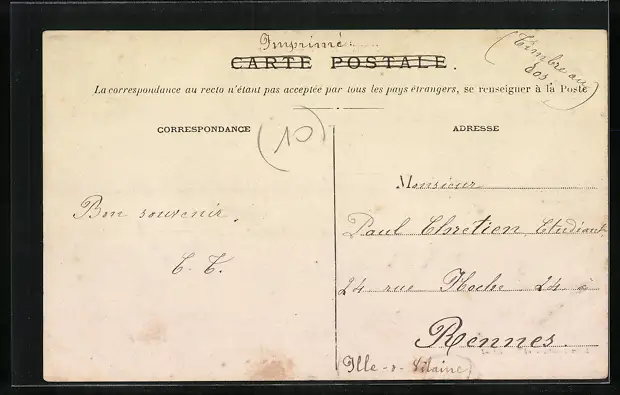 Imprimé
CARTE POSTALE.
(Timbre au
dos)
La correspondance au recto n'étant pas acceptée par tous les pays étrangers, se renseigner à la Poste
CORRESPONDANCE
(10)
ADRESSE
Monsieur
Bon souvenir.
Paul Chrétien, Etudiant
T. T.
24 rue Hoche 24 à
Rennes.
(Ille-&-Vilaine)